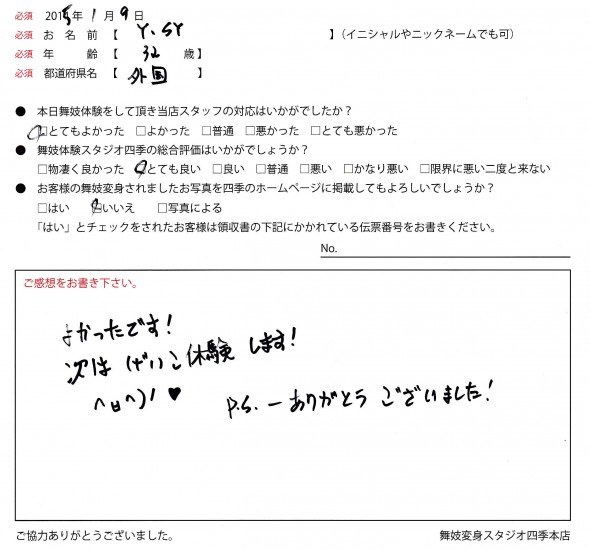 必須 2015年 1月 9日
必須 お名前【 Y. SY 】(イニシャルやニックネームでも可)
必須 年齢【 32 歳】
必須 都道府県名【 外国 】
● 本日舞妓体験をして頂き当店スタッフの対応はいかがでしたか?
□とてもよかった □よかった □普通 □悪かった □とても悪かった
● 舞妓体験スタジオ四季の総合評価はいかがでしょうか?
□物凄く良かった □とても良い □良い □普通 □悪い □かなり悪い □限界に悪い二度と来ない
● お客様の舞妓変身されましたお写真を四季のホームページに掲載してもよろしいでしょうか?
□はい □いいえ □写真による
「はい」とチェックをされたお客様は領収書の下記にかかれている伝票番号をお書きください。
No.
ご感想をお書き下さい。
よかったです!
次は げいこ体験 します!
^ㅂ^)ノ ♥
P.S. ー ありがとう ございました!
ご協力ありがとうございました。 舞妓変身スタジオ四季本店